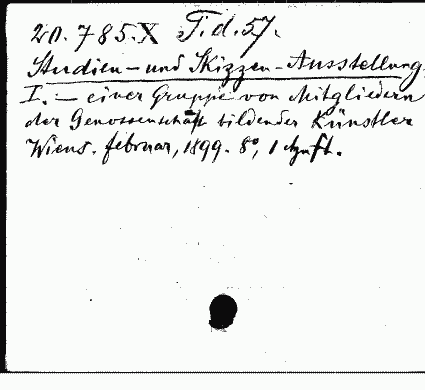 20.785.X T.d.57.
Studien- und Skizzen-Ausstellung,
I. — einer Gruppe von Mitgliedern
der Genossenschaft bildender Künstler
Wiens. Februar, 1899. 8°, 1